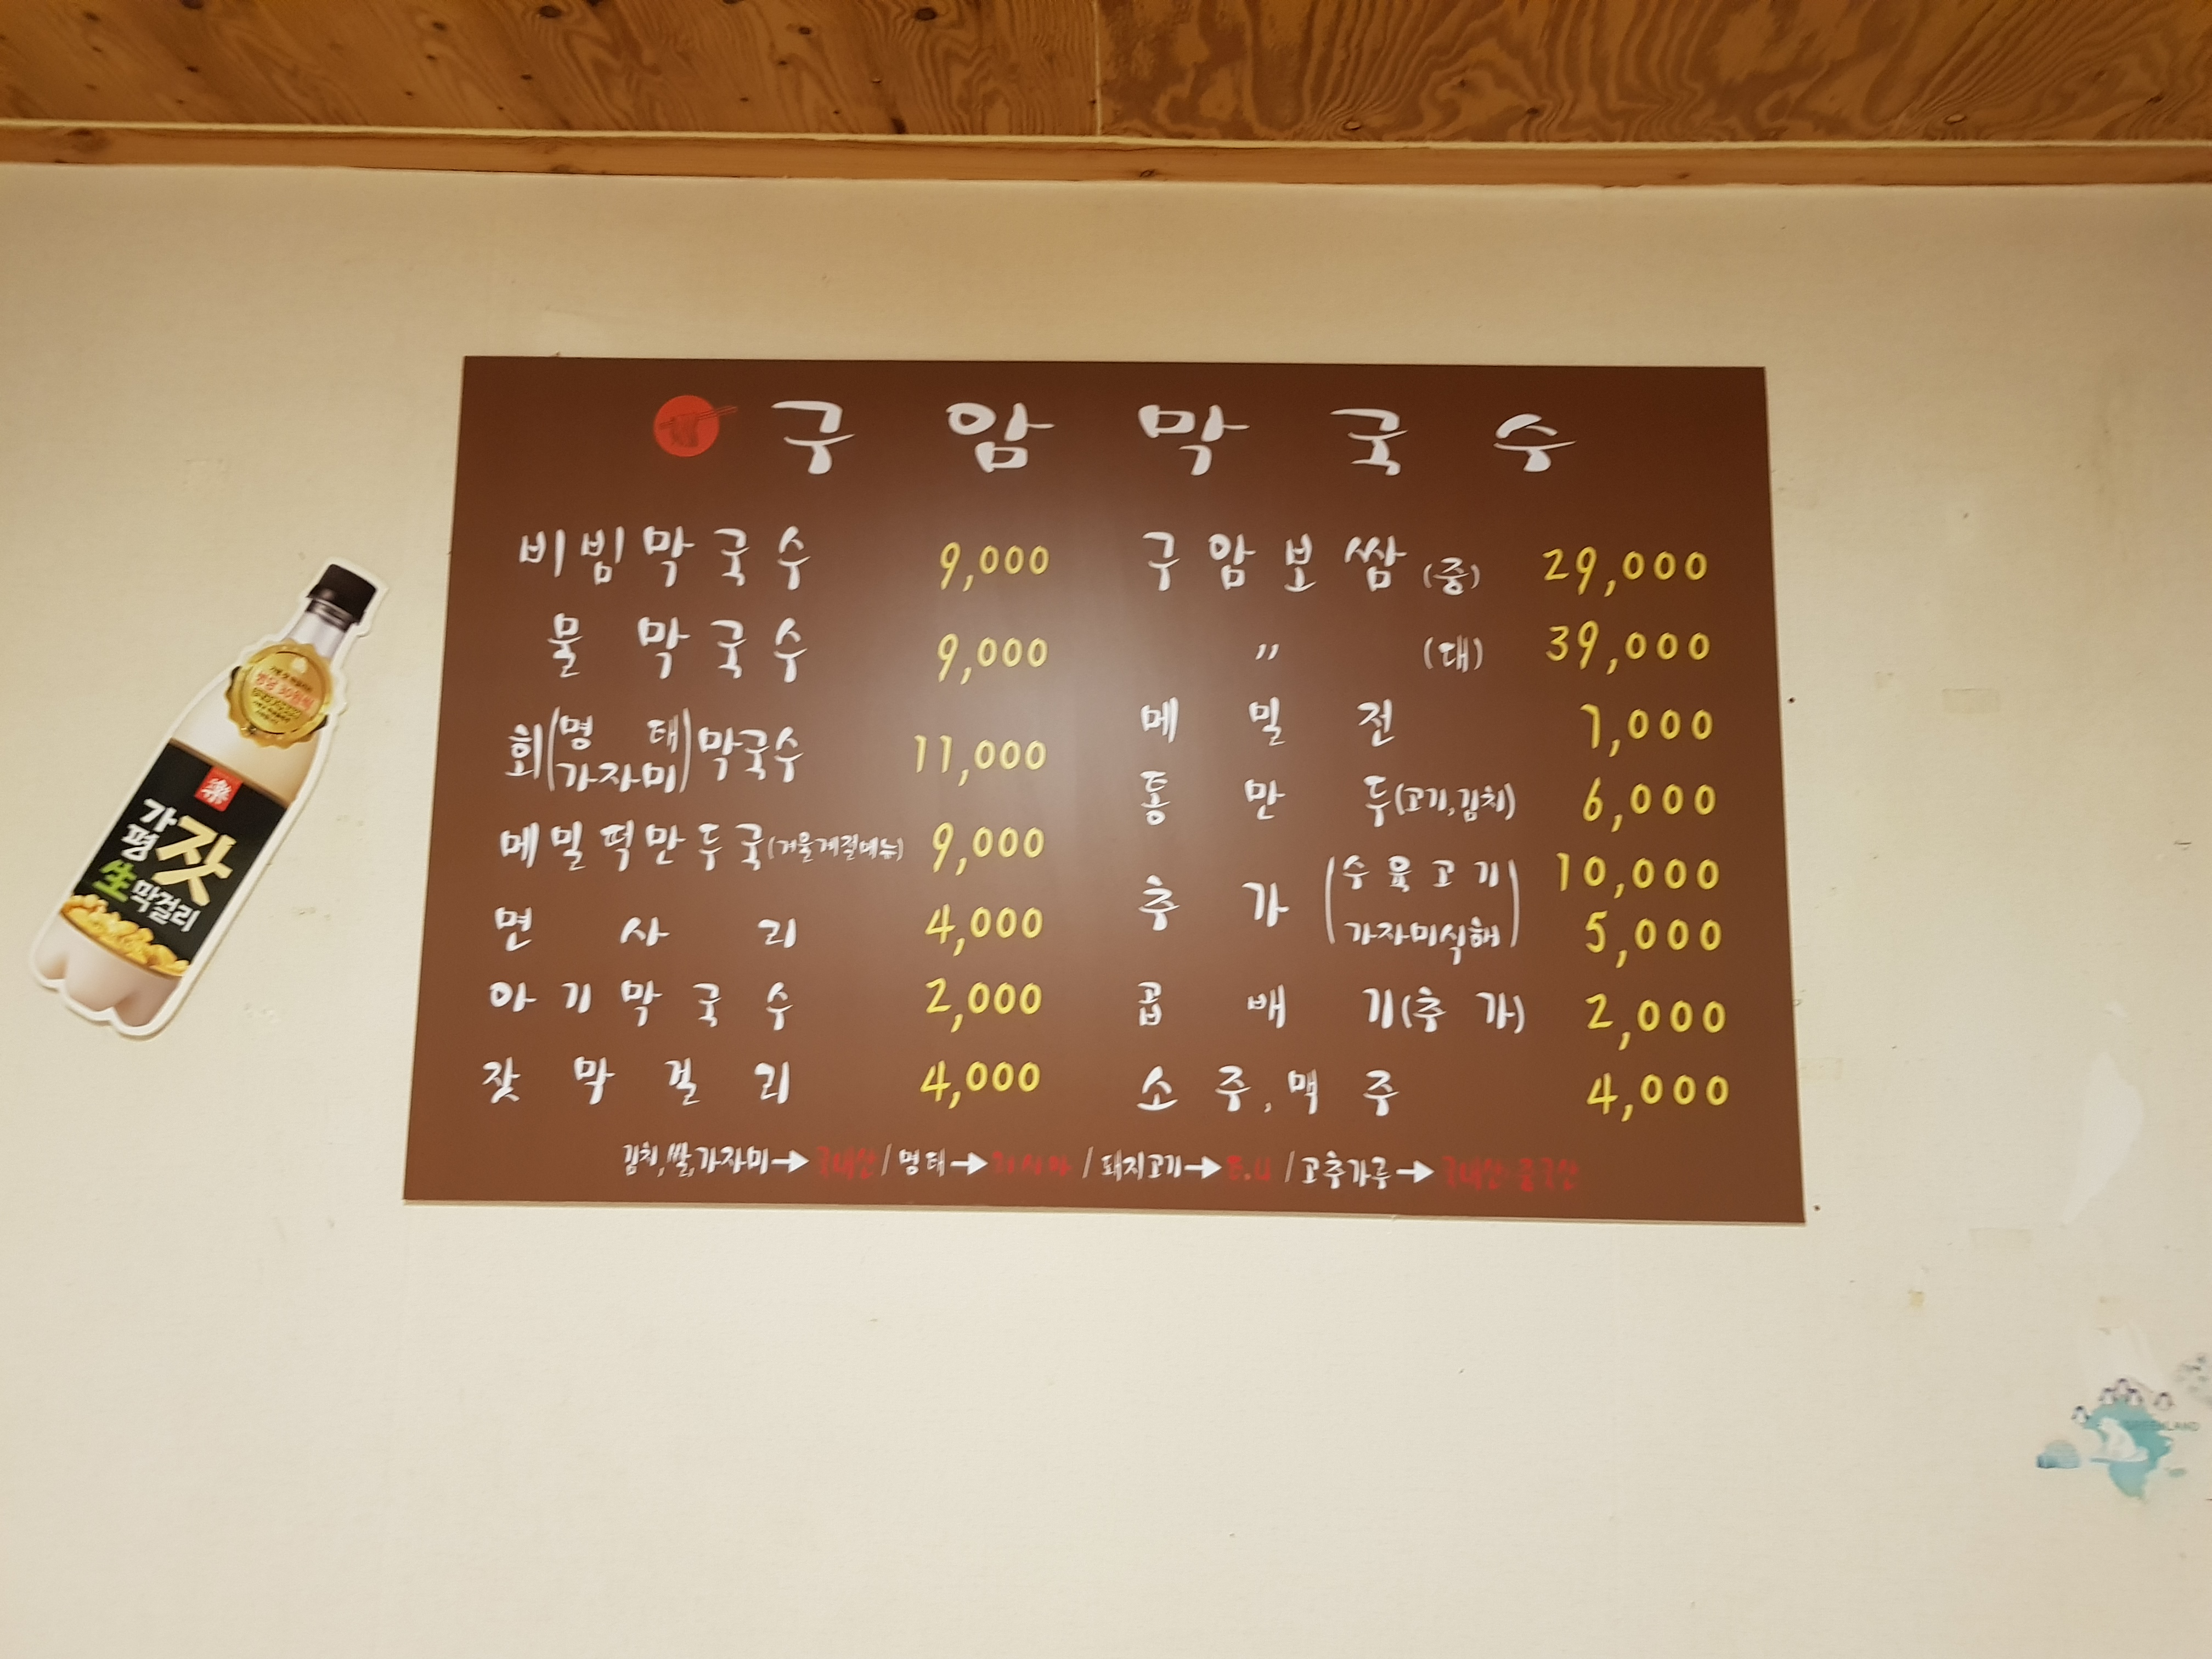 구암막국수
비빔막국수 9,000
물막국수 9,000
회(명태 가자미)막국수 11,000
메밀떡만두국(겨울계절메뉴) 9,000
면사리 4,000
아기막국수 2,000
잣막걸리 4,000
구암보쌈(중) 29,000
〃 (대) 39,000
메밀전 7,000
통만두(고기,김치) 6,000
추가(수육고기 10,000
가자미식해) 5,000
곱배기(추가) 2,000
소주,맥주 4,000
김치,쌀,가자미→국내산/명태→러시아/돼지고기→E.U/고추가루→국내산·중국산
樂
가평 잣
生막걸리